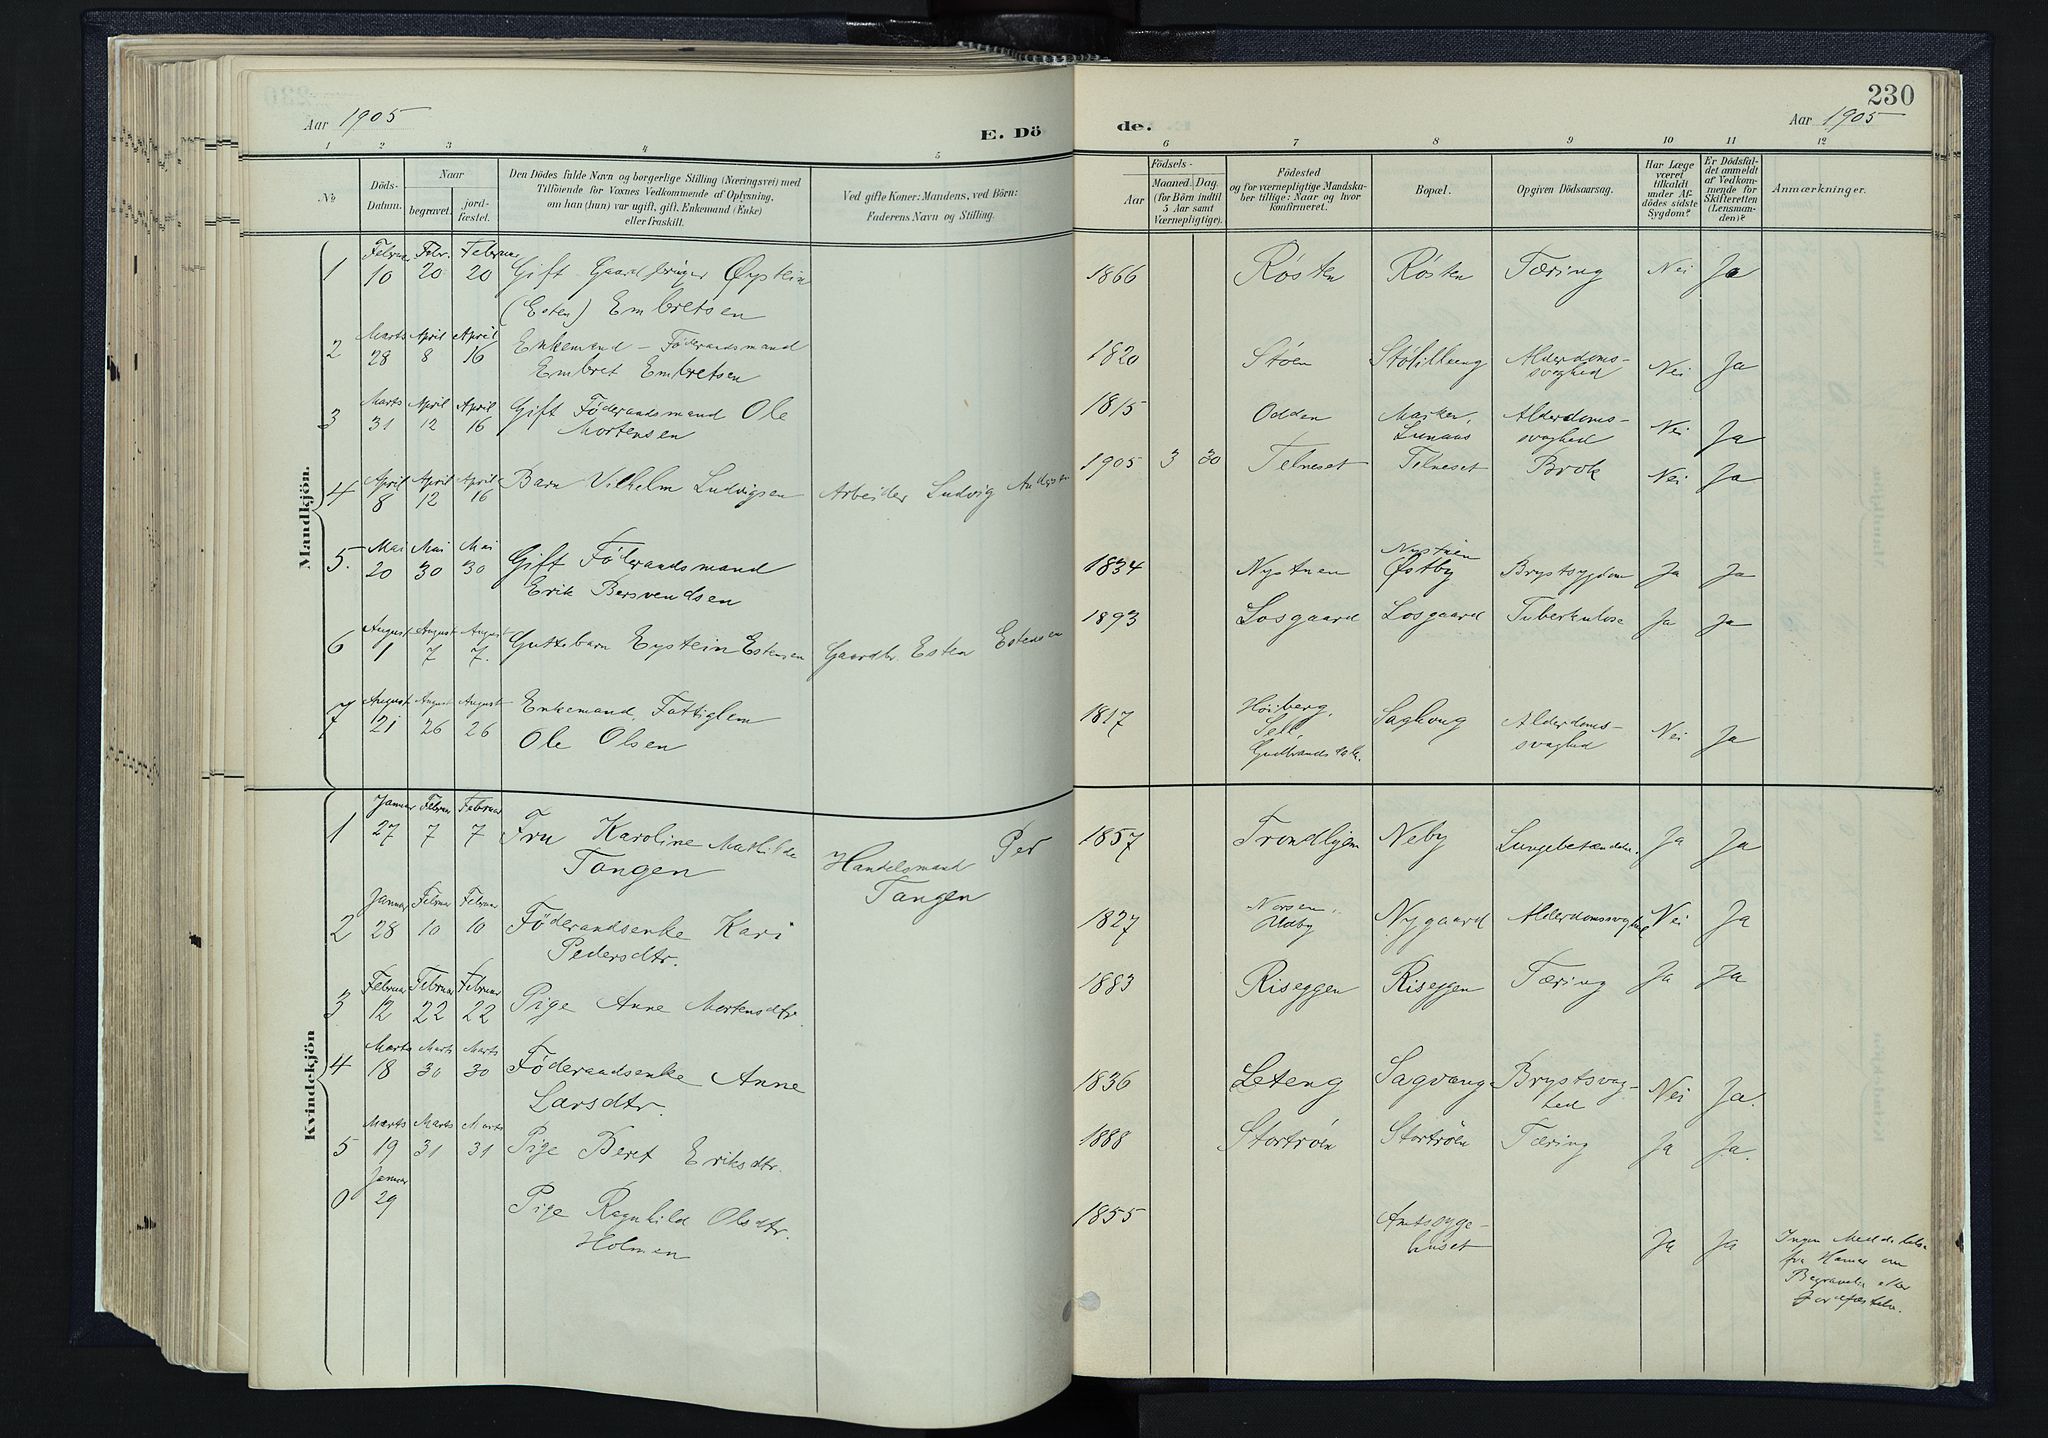 Aar 1905
E. Dö
de.
230
Aar 1905
1 2 3 4 5 6 7 8 9 10 11 12
No
Döds-
Datum.
Naar
begravet.
jord-
fæstet.
Den Dödes fulde Navn og borgerlige Stilling (Næringsvei) med
Tilföiende for Voxnes Vedkommende af Oplysning,
om han (hun) var ugift, gift, Enkemand (Enke)
eller fraskilt.
Ved gifte Koner: Mandens, ved Börn:
Faderens Navn og Stilling.
Födsels-
Aar
Maaned. Dag.
(for Börn indtil
5 Aar samt
Værnepligtige).
Födested
og for værnepligtige Mandska-
ber tillige: Naar og hvor
konfirmeret.
Bopæl.
Opgiven Dödsaarsag.
Har Læge
været
tilkaldt
under Af-
dödes sidste
Sygdom?
Er Dödsfal-
det anmeldt
af Vedkom-
mende for
Skifteretten
(Lensman-
den)?
Anmærkninger.
Mandkjön.
Februar Febr. Februar
1 10 20 20 Gift Gaardbruger Øystein 1866 Røsten Røsten Tæring Nei Ja
(Esten) Embretsen
Marts April April
2 28 8 16 Enkemand - Föderaadsmand 1820 Støen Alderdoms- Nei Ja
Embret Embretsen svaghed
Marts April April
3 31 12 16 Gift Föderaadsmand Ole 1815 Odden Alderdoms- Nei Ja
Mortensen Lunaas svaghed
April April April
4 8 12 16 Barn Vilhelm Ludvigsen Arbeider Ludvig Andersen 1905 3 30 Telneset Telneset Brok Nei Ja
Mai Mai Mai Nystuen
5. 20 30 30 Gift Föderaadsmand 1834 Nystuen Østby Brystsygdom Ja Ja
Erik Bersvendsen
August August August
6 1 7 7. Guttebarn Eystein Estensen Gaardbr. Esten Estensen 1893 Losgaard Losgaard Tuberkulose Ja Ja
August August August
7 21 26 26 Enkemand, Fattiglem 1817 Høiberg, Alderdoms- Nei Ja
Ole Olsen Sell svaghed
Gudbrandsdalen.
Kvindekjön
Januar Februar Februar
1 27 7 7 Fru Karoline Mathilde Handelsmand Per 1857 Trondhjem Neby Lungebetændelse. Ja Ja
Tangen Tangen
Januar Februar Februar
2 28 10 10 Föderaadsenke Kari 1827 Nygaard Alderdomssvaghed Nei Ja
Pedersdtr. Udby
Februar Februar Februar
3 12 22 22 Pige Anne Mortensdtr. 1883 Riseggen Riseggen Tæring Ja Ja
Marts Marts Marts
4 18 30 30 Föderaadsenke Anne 1836 Leteng Sagvang Brystsvag- Nei Ja.
Larsdtr. hed
Marts Marts Marts
5 19 31 31 Pige Beret Eriksdtr. 1888 Stortrøen Stortrøen Tæring Ja Ja.
Januar
0 29 Pige Ragnhild Olsdtr. 1855 Amtssyge- Ja Ja Ingen Meddelelse
Holmen huset fra Hamar om
Begravelse eller
Jordfæstelse.